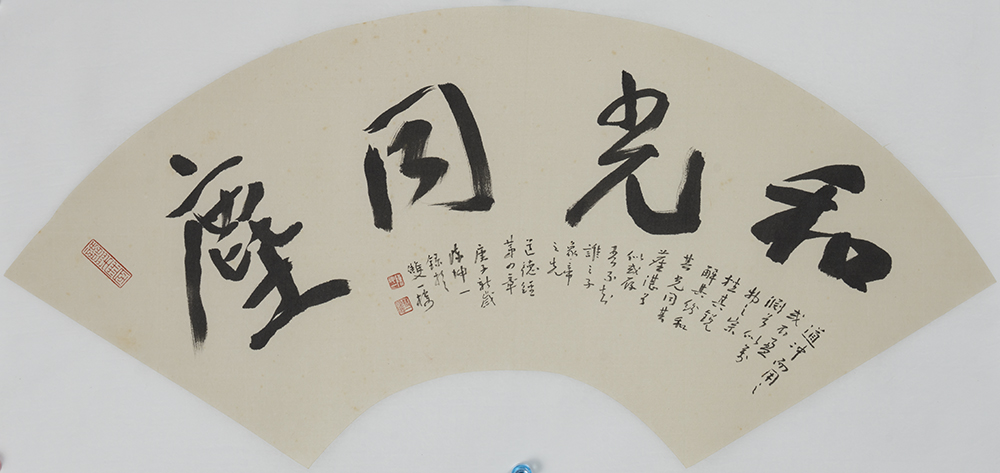 和光同塵
道冲而用之
或不盈
渊兮似萬
物之宗
挫其锐
解其纷和
其光同其
塵湛兮
似或存
吾不知
誰之子
象帝
之先
道德經
第四章
庚子
陈仲一
錄於
雙樓